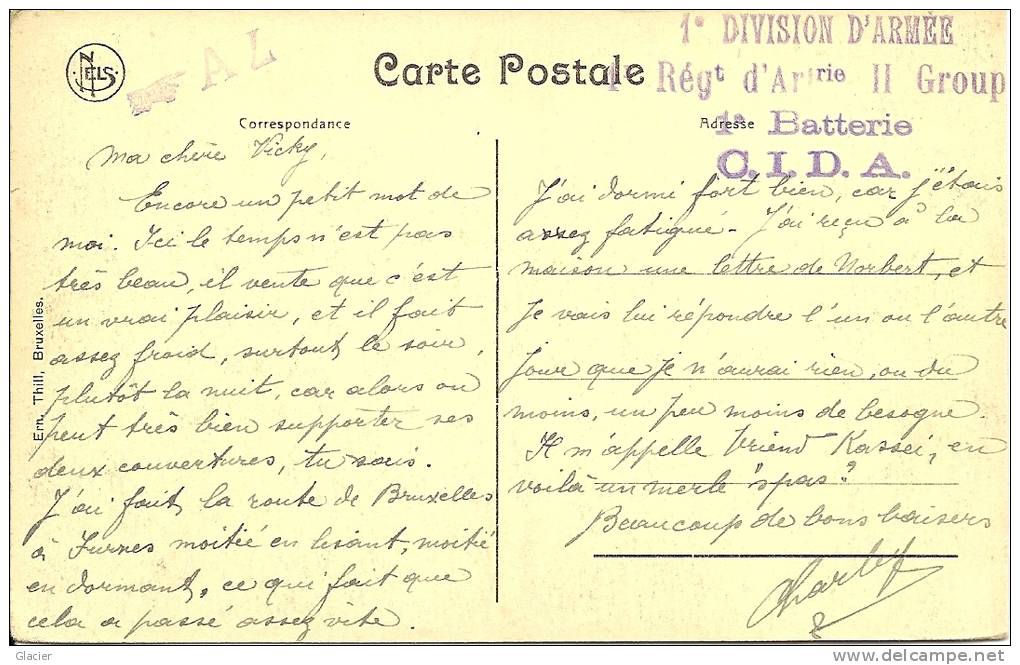 NELS
AL
Carte Postale
1e DIVISION D'ARMÉE
Régt d'Artrie II Group
1e Batterie
C.I.D.A.
Correspondance
Adresse
Ma chère Vicky,
Encore un petit mot de
moi. Ici le temps n'est pas
très beau, il vente que c'est
un vrai plaisir, et il fait
assez froid, surtout le soir,
plutôt la nuit, car alors on
peut très bien supporter ses
deux couvertures, tu sais.
J'ai fait la route de Bruxelles
à Furnes moitié en lisant, moitié
en dormant, ce qui fait que
cela a passé assez vite.
J'ai dormi fort bien, car j'étais
assez fatigué - J'ai reçu à la
maison une lettre de Norbert, et
je vais lui répondre l'un ou l'autre
jour que je n'aurai rien, ou du
moins, un peu moins de besogne.
Il m'appelle Vriend Kassei, en
voilà un merle "spas"?
Beaucoup de bons baisers
Charley
Ern. Thill, Bruxelles.
Glacier
www.delcampe.net